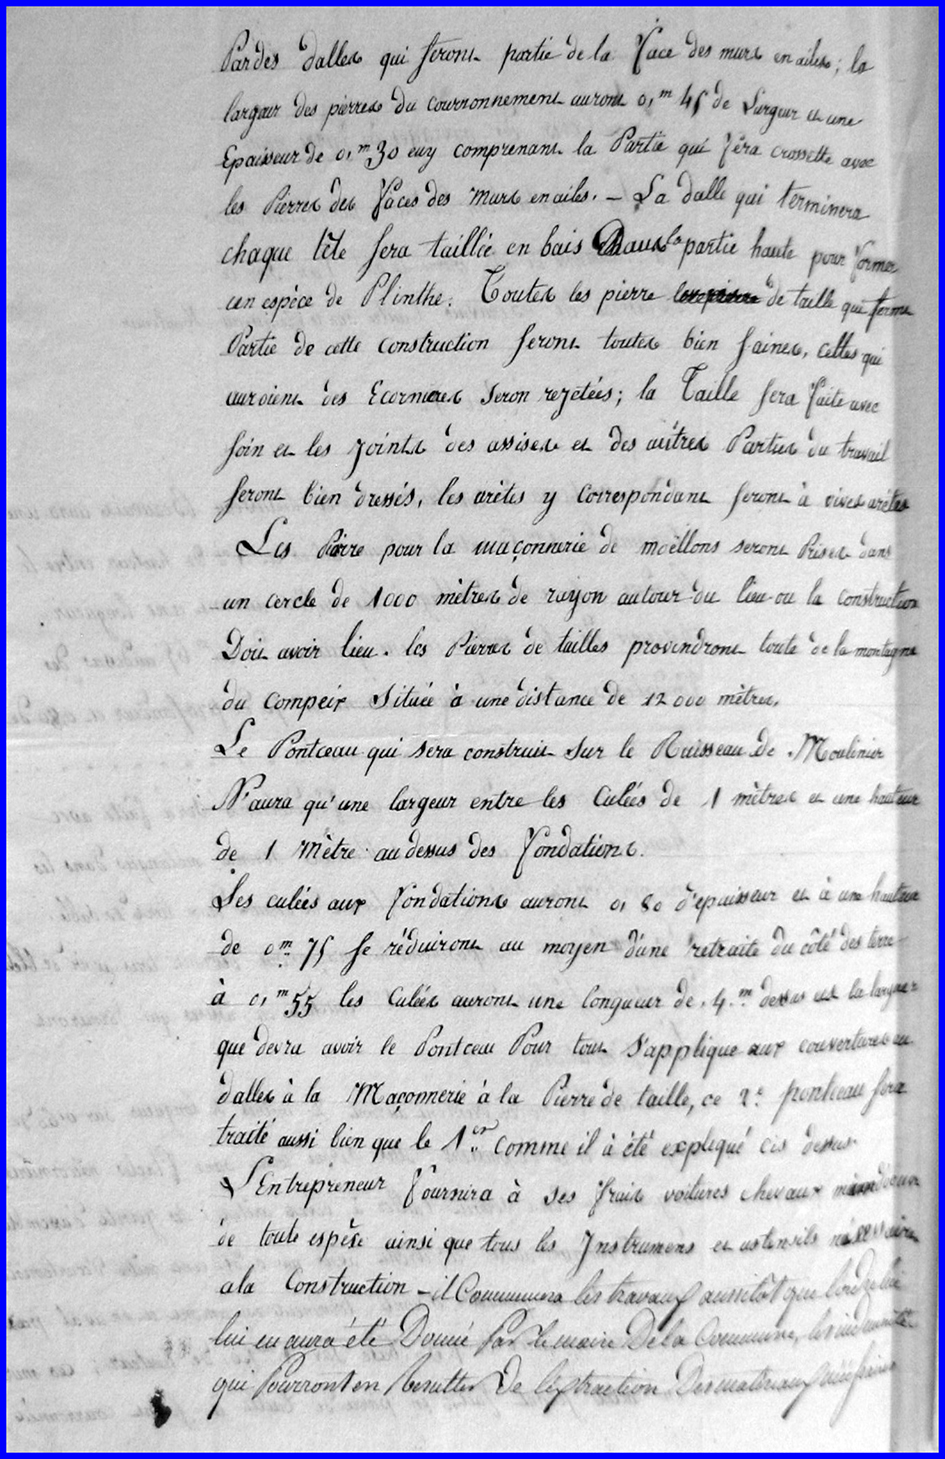 Par des dalles qui feront partie de la face des murs en ailes; la
largeur des pierres du couronnement auront 0,m 45 de Largeur et une
Epaisseur de 0,m 30 en y comprenant la Partie qui fera crossette avec
les Pierres des faces des murs en ailes. – La dalle qui terminera
chaque tête sera taillée en bais dans la partie haute pour former
un espèce de Plinthe. Toutes les pierre de taille qui forme
Partie de cette construction seront toutes bien saines, celles qui
auroient des Ecornures seron rejetées; la Taille sera faite avec
soin et les joints des assises et des autres Parties du travail
seront bien dressés, les arêtes y correspondant seront à vives arêtes
Les Pierre pour la maçonnerie de moëllons seront Prises dans
un cercle de 1000 mètres de rayon autour du lieu ou la construction
Doit avoir lieu. les Pierres de tailles proviendront toute de la montagne
du Compeix Située à une distance de 12000 mètres.
Le Pontceau qui sera construit Sur le Ruisseau de Moulinier
N'aura qu'une largeur entre les Culées de 1 mètres et une hauteur
de 1 Mètre au dessus des fondations.
Les culées aux fondations auront 0, 80 d'epaisseur et à une hauteur
de 0m 75 se réduiront au moyen d'une retraite du côté des terre
à 0,m 55 les Culées auront une longueur de 4.m dessus est la largeur
que devra avoir le Pontceau Pour tout S'applique aux couvertures en
dalles à la Maçonnerie à la Pierre de taille, ce 2e pontceau sera
traité aussi bien que le 1er comme il à été expliqué cis dessus
L'Entrepreneur fournira à ses frais voitures chevaux
de toute espèce ainsi que tous les Instrumens et ustensils nécessaires
a la Construction – il Commencera les travaux aussitôt que l'ordre
lui en aura été Donné Par le maire De la Commune, les indemnités
qui Pourront en Resulter De l'extraction Des materiaux